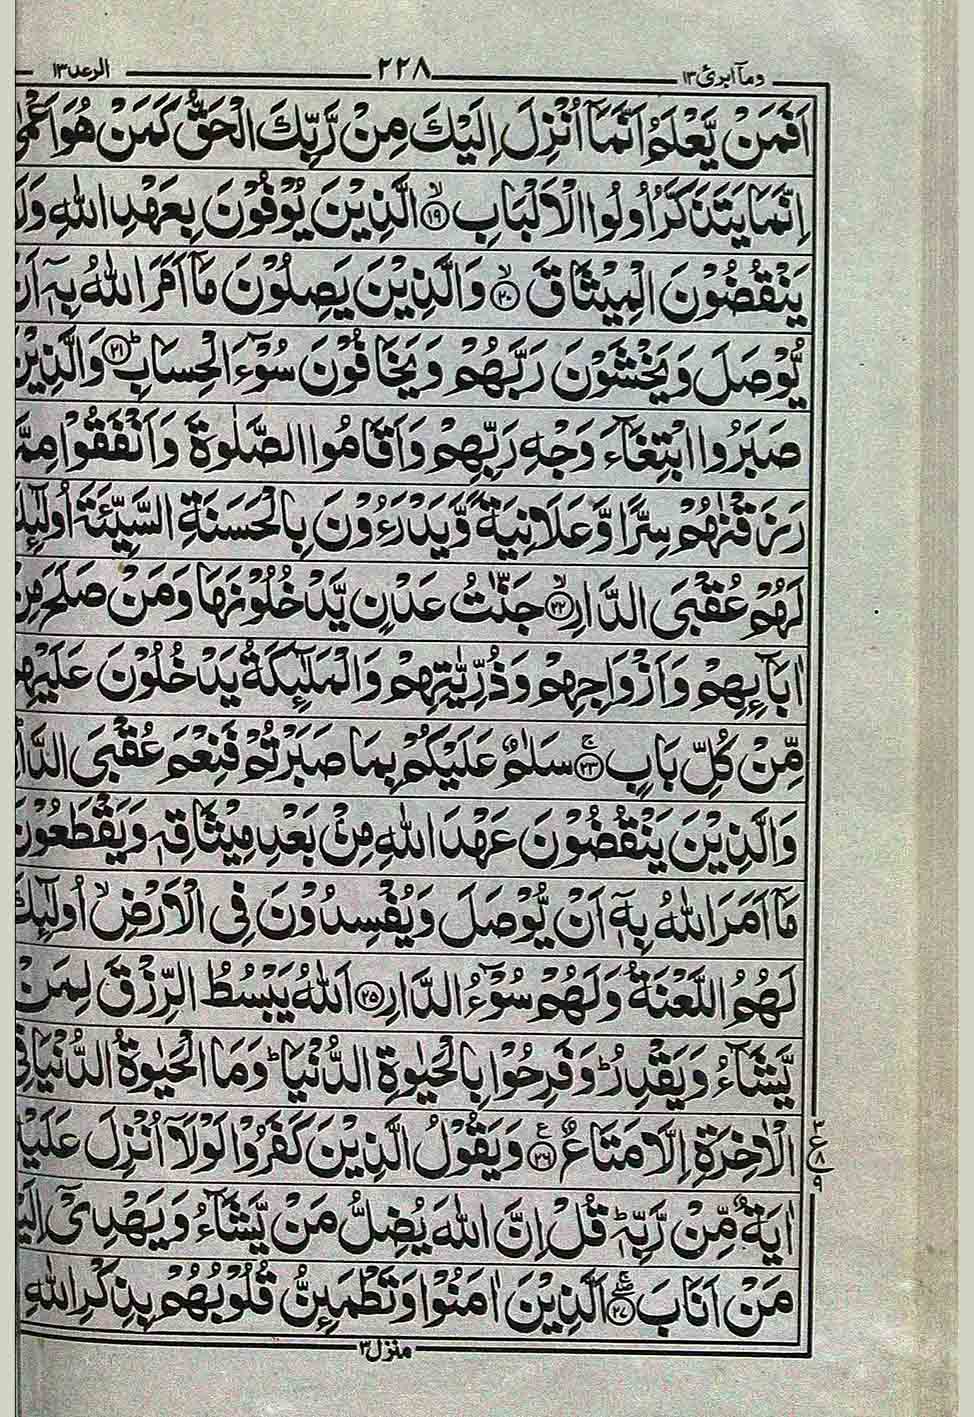 وما ابرئ ١٣
٢٢٨
الرعد ١٣
اَفَمَنْ يَّعْلَمُ اَنَّمَاۤ اُنْزِلَ اِلَيْكَ مِنْ رَّبِّكَ الْحَقُّ كَمَنْ هُوَ اَعْمٰى
اِنَّمَا يَتَذَكَّرُ اُولُوا الْاَلْبَابِ ۙ﴿۱۹﴾ الَّذِيْنَ يُوْفُوْنَ بِعَهْدِ اللّٰهِ
يَنْقُضُوْنَ الْمِيْثَاقَ ۙ﴿۲۰﴾ وَالَّذِيْنَ يَصِلُوْنَ مَاۤ اَمَرَ اللّٰهُ بِهٖۤ اَنْ
يُّوْصَلَ وَيَخْشَوْنَ رَبَّهُمْ وَيَخَافُوْنَ سُوْٓءَ الْحِسَابِ ؕ﴿۲۱﴾ وَالَّذِيْنَ
صَبَرُوا ابْتِغَآءَ وَجْهِ رَبِّهِمْ وَاَقَامُوا الصَّلٰوةَ وَاَنْفَقُوْا مِمَّا
رَزَقْنٰهُمْ سِرًّا وَّعَلَانِيَةً وَّيَدْرَءُوْنَ بِالْحَسَنَةِ السَّيِّئَةَ اُولٰٓئِكَ
لَهُمْ عُقْبَى الدَّارِ ۙ﴿۲۲﴾ جَنّٰتُ عَدْنٍ يَّدْخُلُوْنَهَا وَمَنْ صَلَحَ مِنْ
اٰبَآئِهِمْ وَاَزْوَاجِهِمْ وَذُرِّيّٰتِهِمْ وَالْمَلٰٓئِكَةُ يَدْخُلُوْنَ عَلَيْهِمْ
مِّنْ كُلِّ بَابٍ ۚ﴿۲۳﴾ سَلٰمٌ عَلَيْكُمْ بِمَا صَبَرْتُمْ فَنِعْمَ عُقْبَى الدَّارِ
وَالَّذِيْنَ يَنْقُضُوْنَ عَهْدَ اللّٰهِ مِنْۢ بَعْدِ مِيْثَاقِهٖ وَيَقْطَعُوْنَ
مَاۤ اَمَرَ اللّٰهُ بِهٖۤ اَنْ يُّوْصَلَ وَيُفْسِدُوْنَ فِى الْاَرْضِ ۙ اُولٰٓئِكَ
لَهُمُ اللَّعْنَةُ وَلَهُمْ سُوْٓءُ الدَّارِ ﴿۲۵﴾ اَللّٰهُ يَبْسُطُ الرِّزْقَ لِمَنْ
يَّشَآءُ وَيَقْدِرُ ؕ وَفَرِحُوْا بِالْحَيٰوةِ الدُّنْيَا ؕ وَمَا الْحَيٰوةُ الدُّنْيَا فِى
الْاٰخِرَةِ اِلَّا مَتَاعٌ ﴿۲۶﴾ وَيَقُوْلُ الَّذِيْنَ كَفَرُوْا لَوْلَاۤ اُنْزِلَ عَلَيْهِ
اٰيَةٌ مِّنْ رَّبِّهٖ ؕ قُلْ اِنَّ اللّٰهَ يُضِلُّ مَنْ يَّشَآءُ وَيَهْدِىْۤ اِلَيْهِ
مَنْ اَنَابَ ﴿۲۷﴾ اَلَّذِيْنَ اٰمَنُوْا وَتَطْمَئِنُّ قُلُوْبُهُمْ بِذِكْرِ اللّٰهِ
٣
ع
٨
٩
منزل ٣